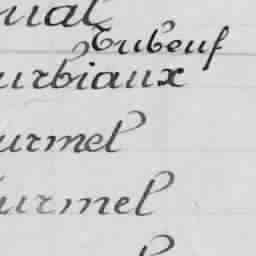 ual
Tubeuf
urbiaux
urmel
urmel